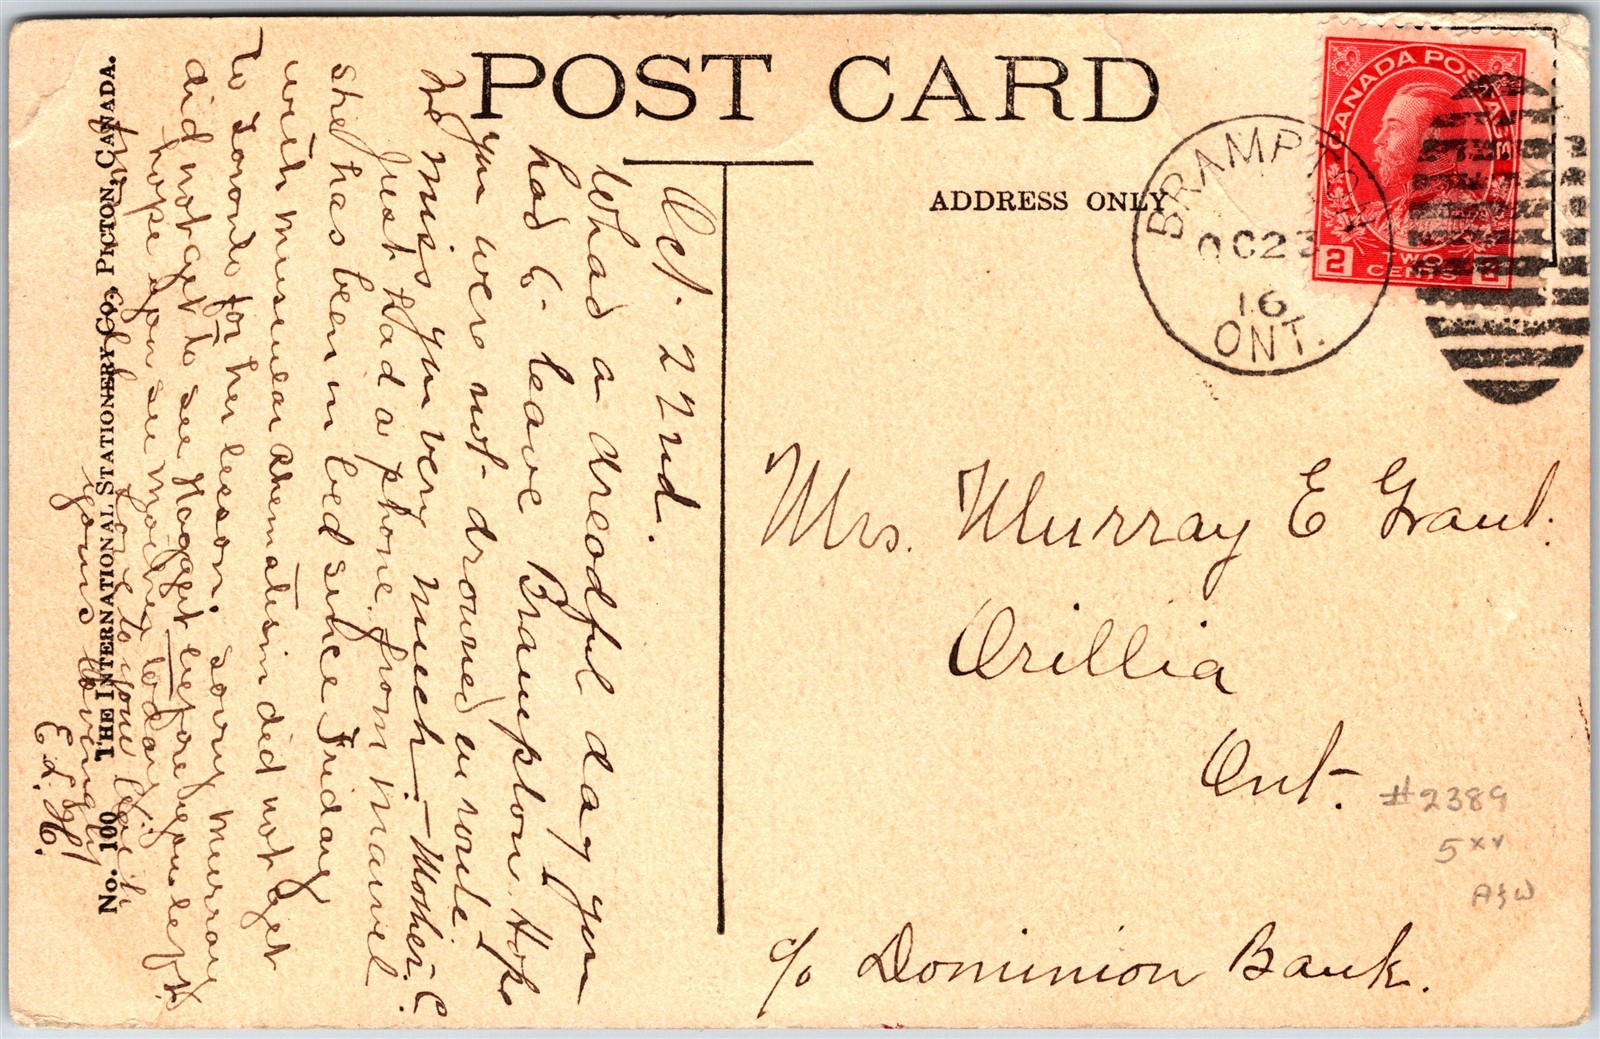 POST CARD
ADDRESS ONLY
CANADA POSTAGE
2 TWO CENTS 2
BRAMPTON
OC 23
16
ONT.
Oct. 22nd.
What a dreadful day you
had to leave Brampton. Hope
you were not drowned en route.
We miss you very much. — Mother &
I just had a phone from
she has been in bed since Friday
with muscular rhematism did not get
to Toronto for her lesson. sorry Murray
did not get to see before you left.
hope you see Mother today
Love to you
yours lovingly
E. L. H.
Mrs. Murray E Grant.
Orillia
Ont.
c/o Dominion Bank.
#2389
5xx
No. 100 THE INTERNATIONAL STATIONERY CO., PICTON, CANADA.